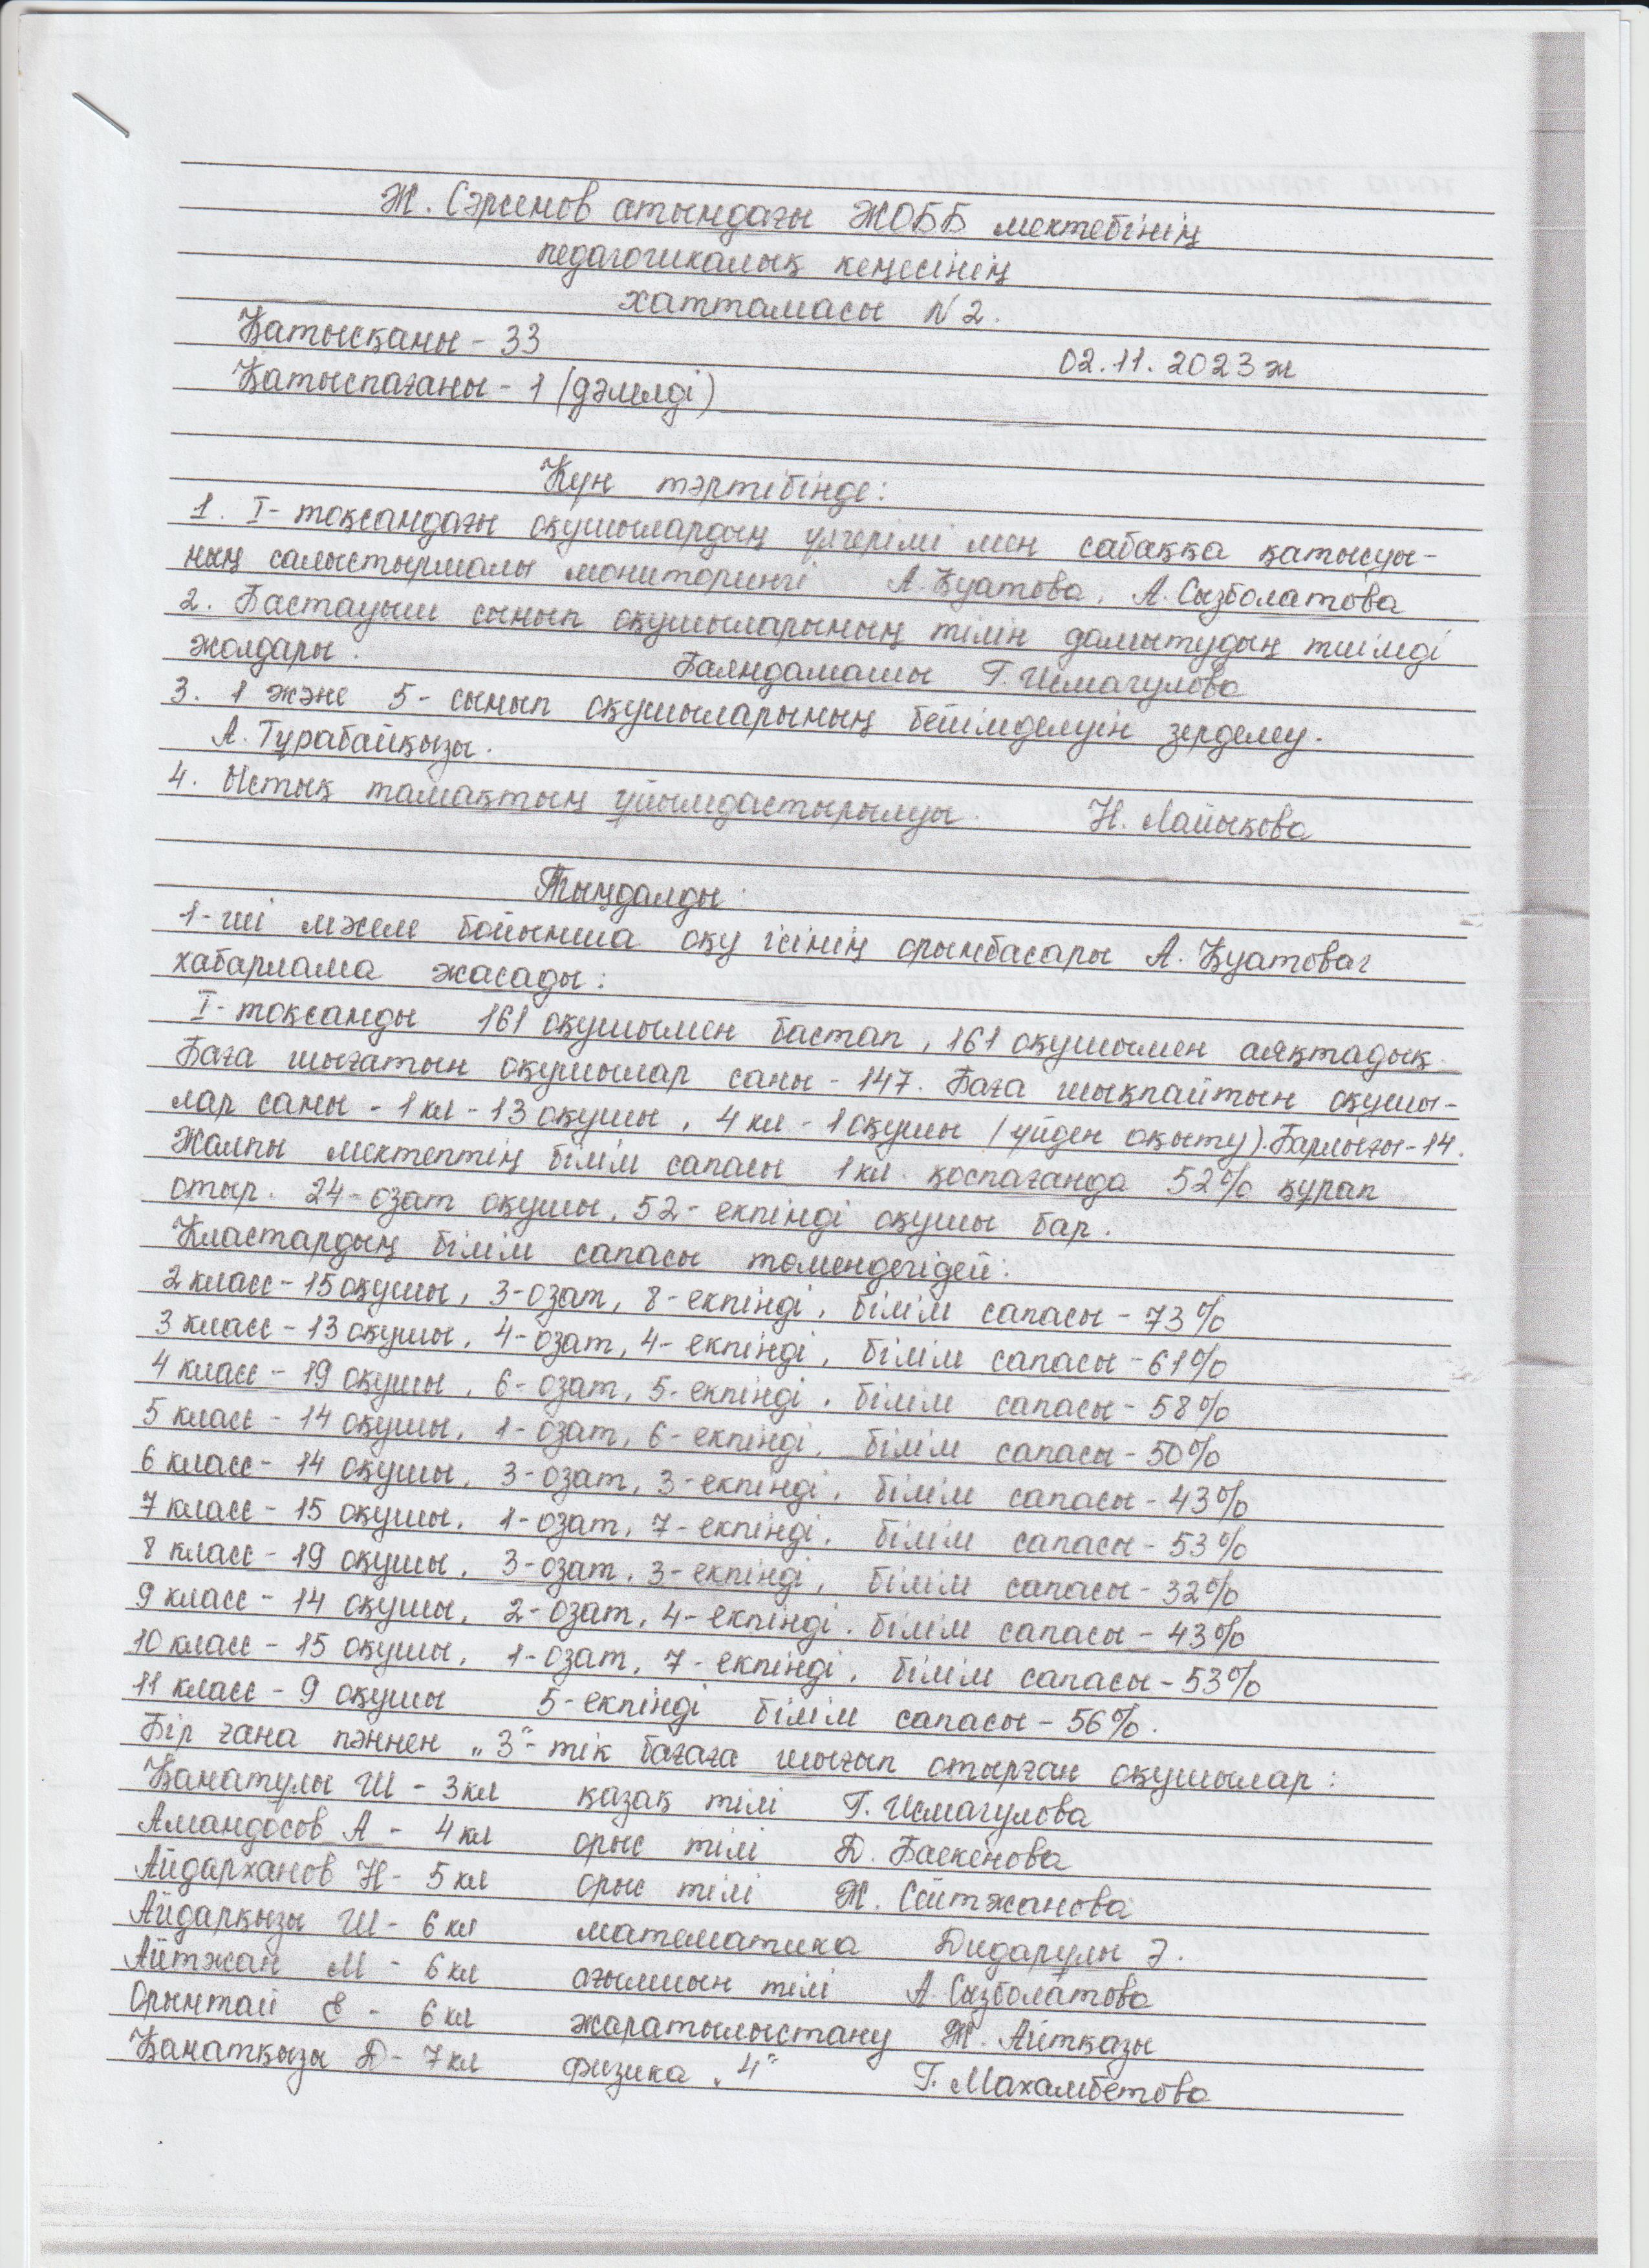 Ж. Сәрсенов атындағы ЖОББ мектебінің
педагогикалық кеңесінің
хаттамасы №2.
Қатысқаны - 33
02.11.2023ж
Қатыспағаны - 1 (дәлелді)
Күн тәртібінде:
1. I-тоқсандағы оқушылардың үлгерімі мен сабаққа қатысуы-
ның салыстырмалы мониторингі А.Қуатова, А.Сызболатова
2. Бастауыш сынып оқушыларының тілін дамытудың тиімді
жолдары. Баяндамашы Г.Исмагулова
3. 1 және 5-сынып оқушыларының бейімделуін зерделеу.
А.Тұрабайқызы.
4. Ыстық тамақтың ұйымдастырылуы. Н. Лайықова
Тыңдалды:
1-ші мәселе бойынша оқу ісінің орынбасары А. Қуатова
хабарлама жасады:
I-тоқсанды 161 оқушымен бастап, 161 оқушымен аяқтадық.
Баға шығатын оқушылар саны - 147. Баға шықпайтын оқушы-
лар саны - 1 кл - 13 оқушы, 4 кл - 1 оқушы (үйден оқыту). Барлығы - 14.
Жалпы мектептің білім сапасы 1 кл. қоспағанда 52% құрап
отыр. 24-озат оқушы, 52-екпінді оқушы бар.
Кластардың білім сапасы төмендегідей:
2 класс - 15 оқушы, 3-озат, 8-екпінді, білім сапасы - 73%
3 класс - 13 оқушы, 4-озат, 4-екпінді, білім сапасы - 61%
4 класс - 19 оқушы, 6-озат, 5-екпінді, білім сапасы - 58%
5 класс - 14 оқушы, 1-озат, 6-екпінді, білім сапасы - 50%
6 класс - 14 оқушы, 3-озат, 3-екпінді, білім сапасы - 43%
7 класс - 15 оқушы, 1-озат, 7-екпінді, білім сапасы - 53%
8 класс - 19 оқушы, 3-озат, 3-екпінді, білім сапасы - 32%
9 класс - 14 оқушы, 2-озат, 4-екпінді, білім сапасы - 43%
10 класс - 15 оқушы, 1-озат, 7-екпінді, білім сапасы - 53%
11 класс - 9 оқушы 5-екпінді білім сапасы - 56%.
Бір ғана пәннен „3"-тік бағаға шығып отырған оқушылар:
Қанатұлы Ш - 3кл қазақ тілі Г. Исмагулова
Амандосов А - 4 кл орыс тілі Д. Баекенова
Айдарханов Н - 5 кл орыс тілі Ж. Сейтжанова
Айдарқызы Ш - 6 кл математика Дидарұлы Ә.
Айтжан М - 6 кл ағылшын тілі А.Сызболатова
Орынтай Е - 6 кл жаратылыстану Ж. Айтқазы
Қанатқызы Д - 7 кл физика „4" Г. Махамбетова